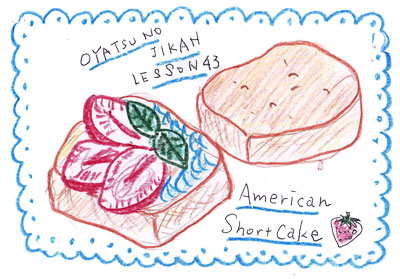 OYATSU NO
JIKAN
LESSON 43
American
Short Cake